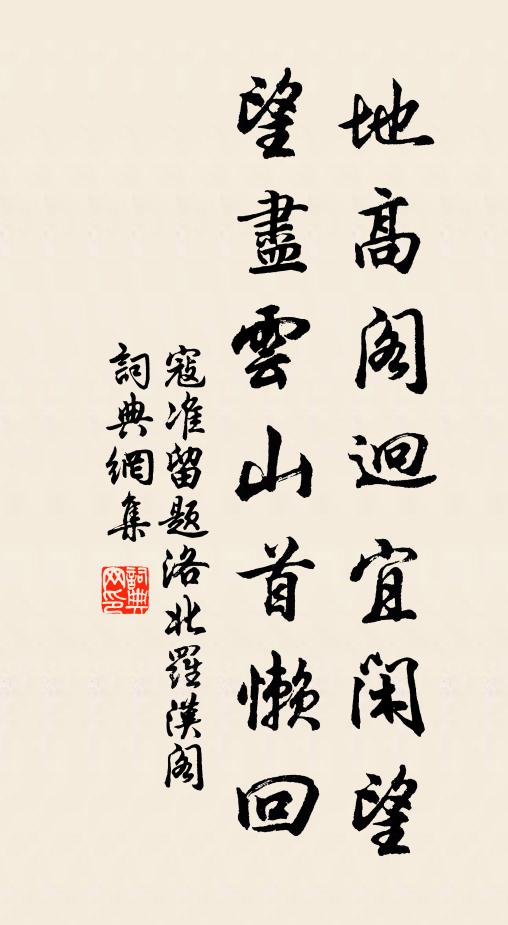 地高閣迥宜閑望
望盡雲山首懶回
寇准留題洛北羅漢阁
詞典網集
詞典网印